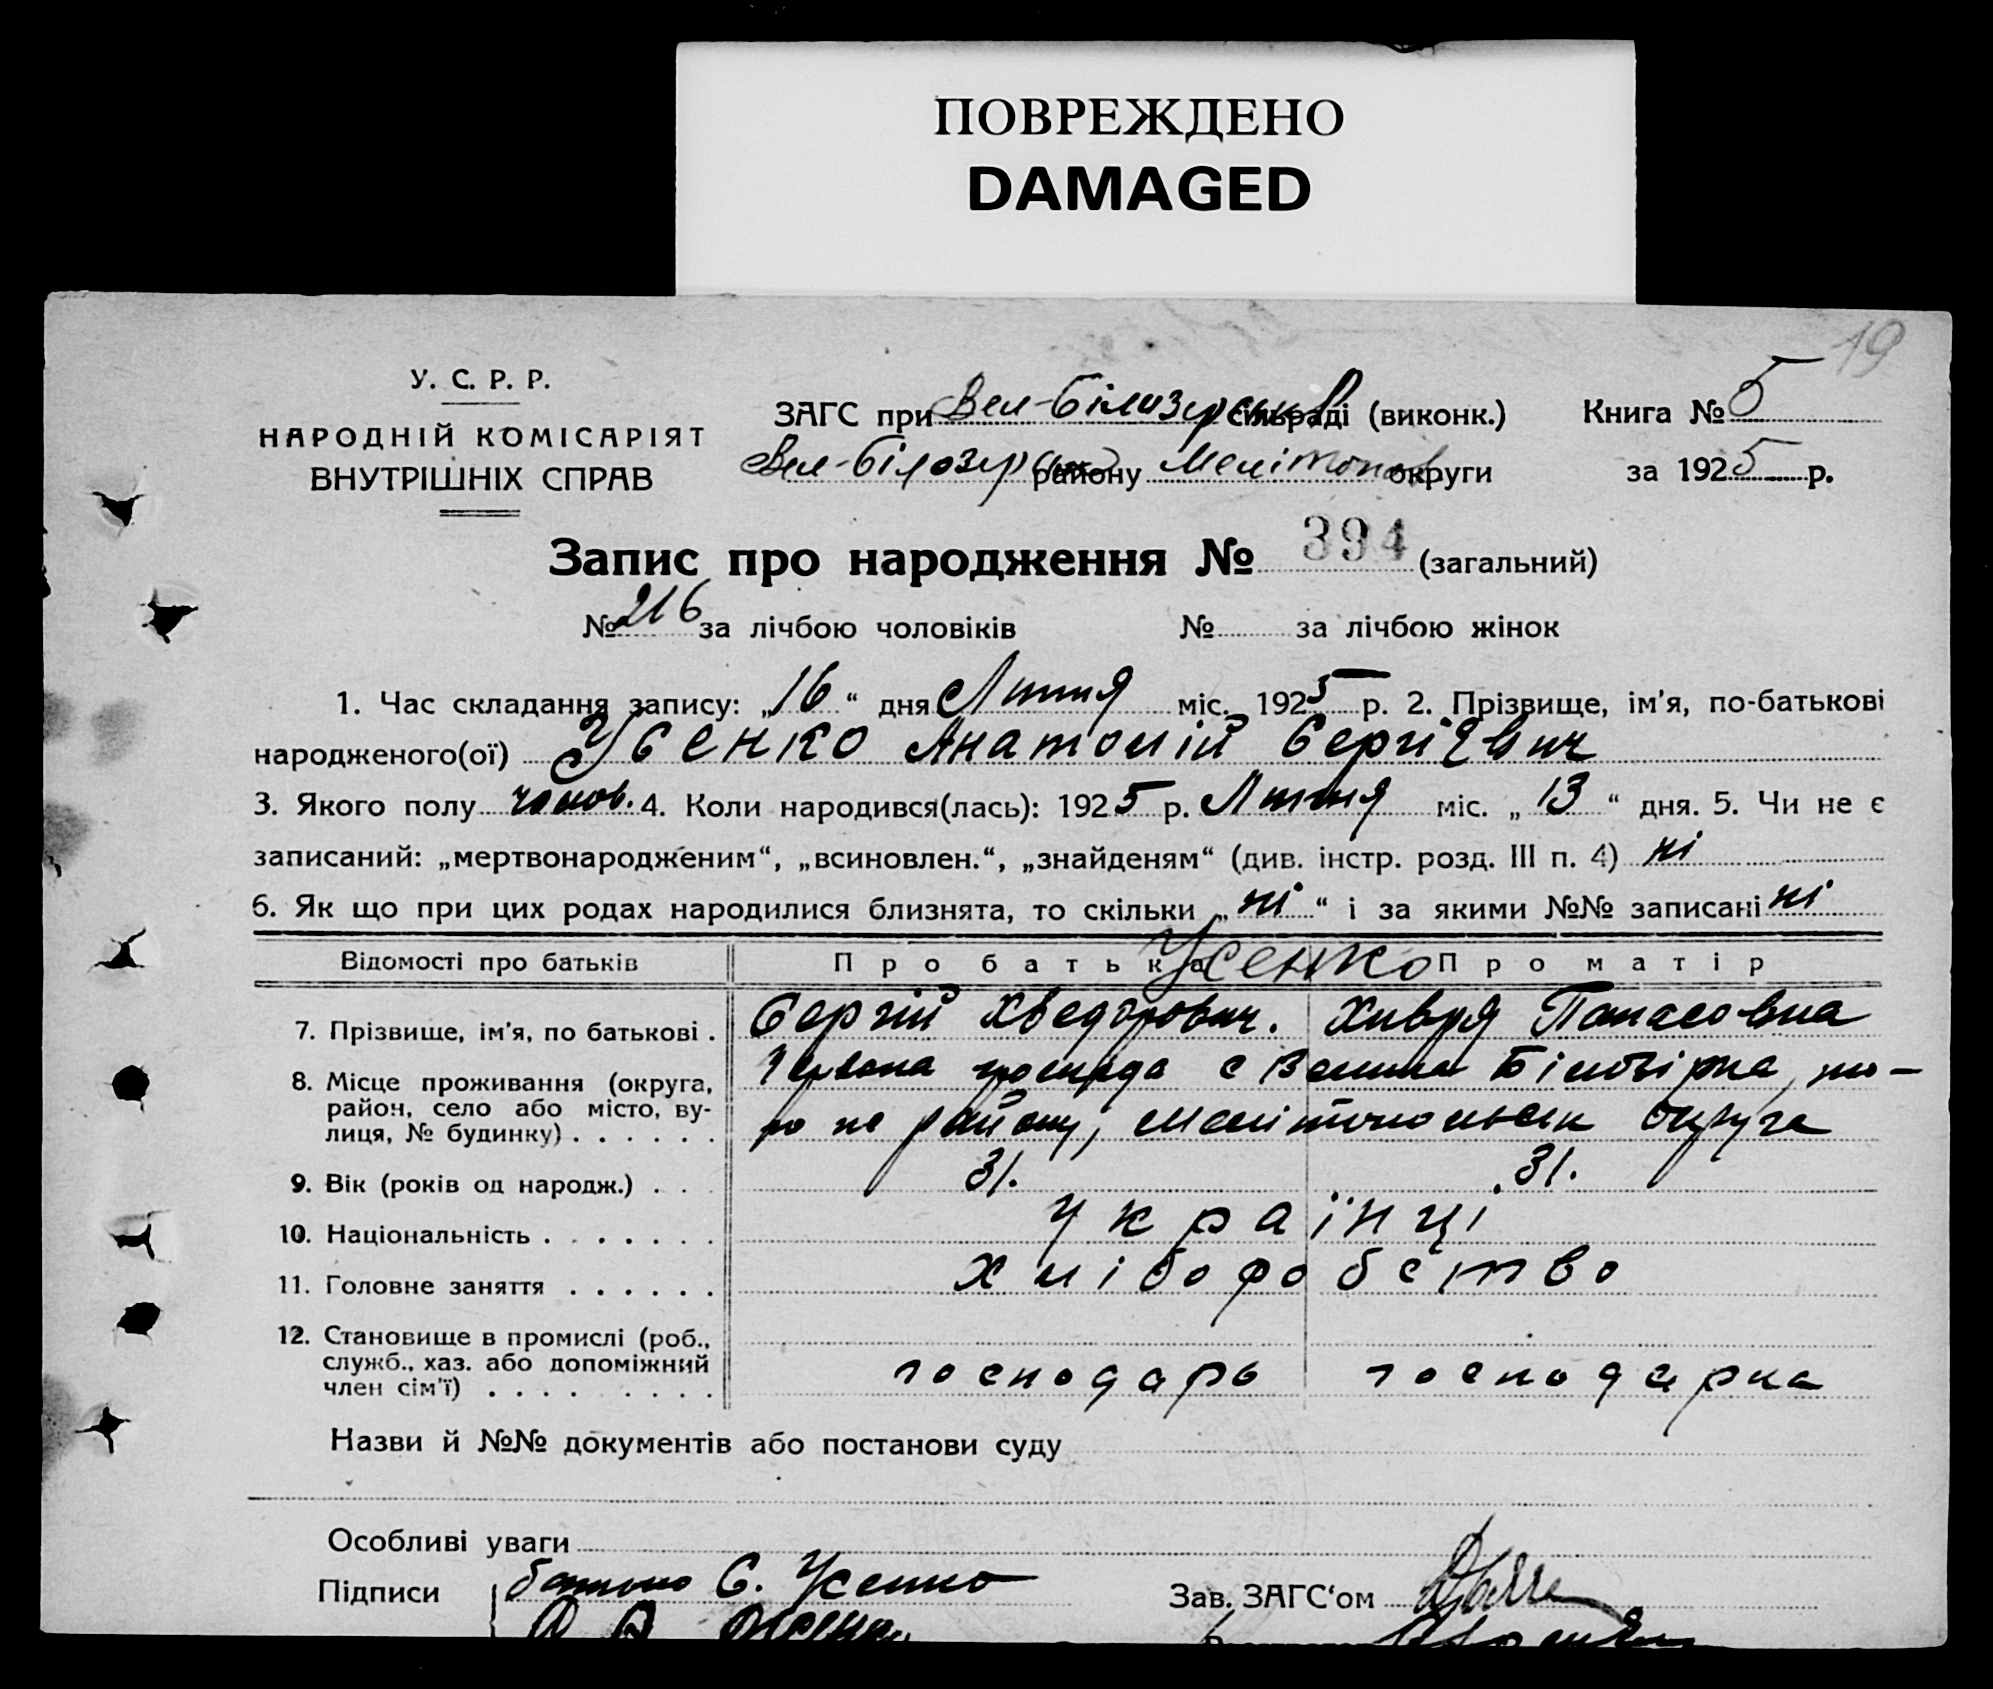 ПОВРЕЖДЕНО
DAMAGED
19
У. С. Р. Р.
НАРОДНІЙ КОМІСАРІЯТ
ВНУТРІШНІХ СПРАВ
ЗАГС при Вел-Білозерськ сільраді (виконк.)
Книга № 5
Вел-Білозерськ району Мелітопол округи
за 1925 р.
Запис про народження № 394 (загальний)
№ 216 за лічбою чоловіків № за лічбою жінок
1. Час складання запису: „16“ дня Липня міс. 1925 р. 2. Прізвище, ім'я, по-батькові
народженого(ої) Усенко Анатолій Сергієвич
3. Якого полу чолов. 4. Коли народився(лась): 1925 р. Липня міс. „13“ дня. 5. Чи не є
записаний: „мертвонародженим“, „всиновлен.“, „знайденям“ (див. інстр. розд. III п. 4) ні
6. Як що при цих родах народилися близнята, то скільки „ні“ і за якими №№ записані ні
Відомості про батьків Про батька Усенко Про матір
7. Прізвище, ім'я, по батькові . Сергій Хведорович. Хивря Панасовна
8. Місце проживання (округа, Червона громада с Велика Білозірка,
район, село або місто, ву-
лиця, № будинку) . . . . . . району, Мелітопольськ округа
9. Вік (років од народж.) . . . 31. 31.
10. Національність . . . . . . . Українці
11. Головне заняття . . . . . . Хліборобство
12. Становище в промислі (роб.,
служб., хаз. або допоміжний
член сім'ї) . . . . . . . . господарь господарка
Назви й №№ документів або постанови суду
Особливі уваги
Підписи батько С. Усенко Зав. ЗАГС'ом